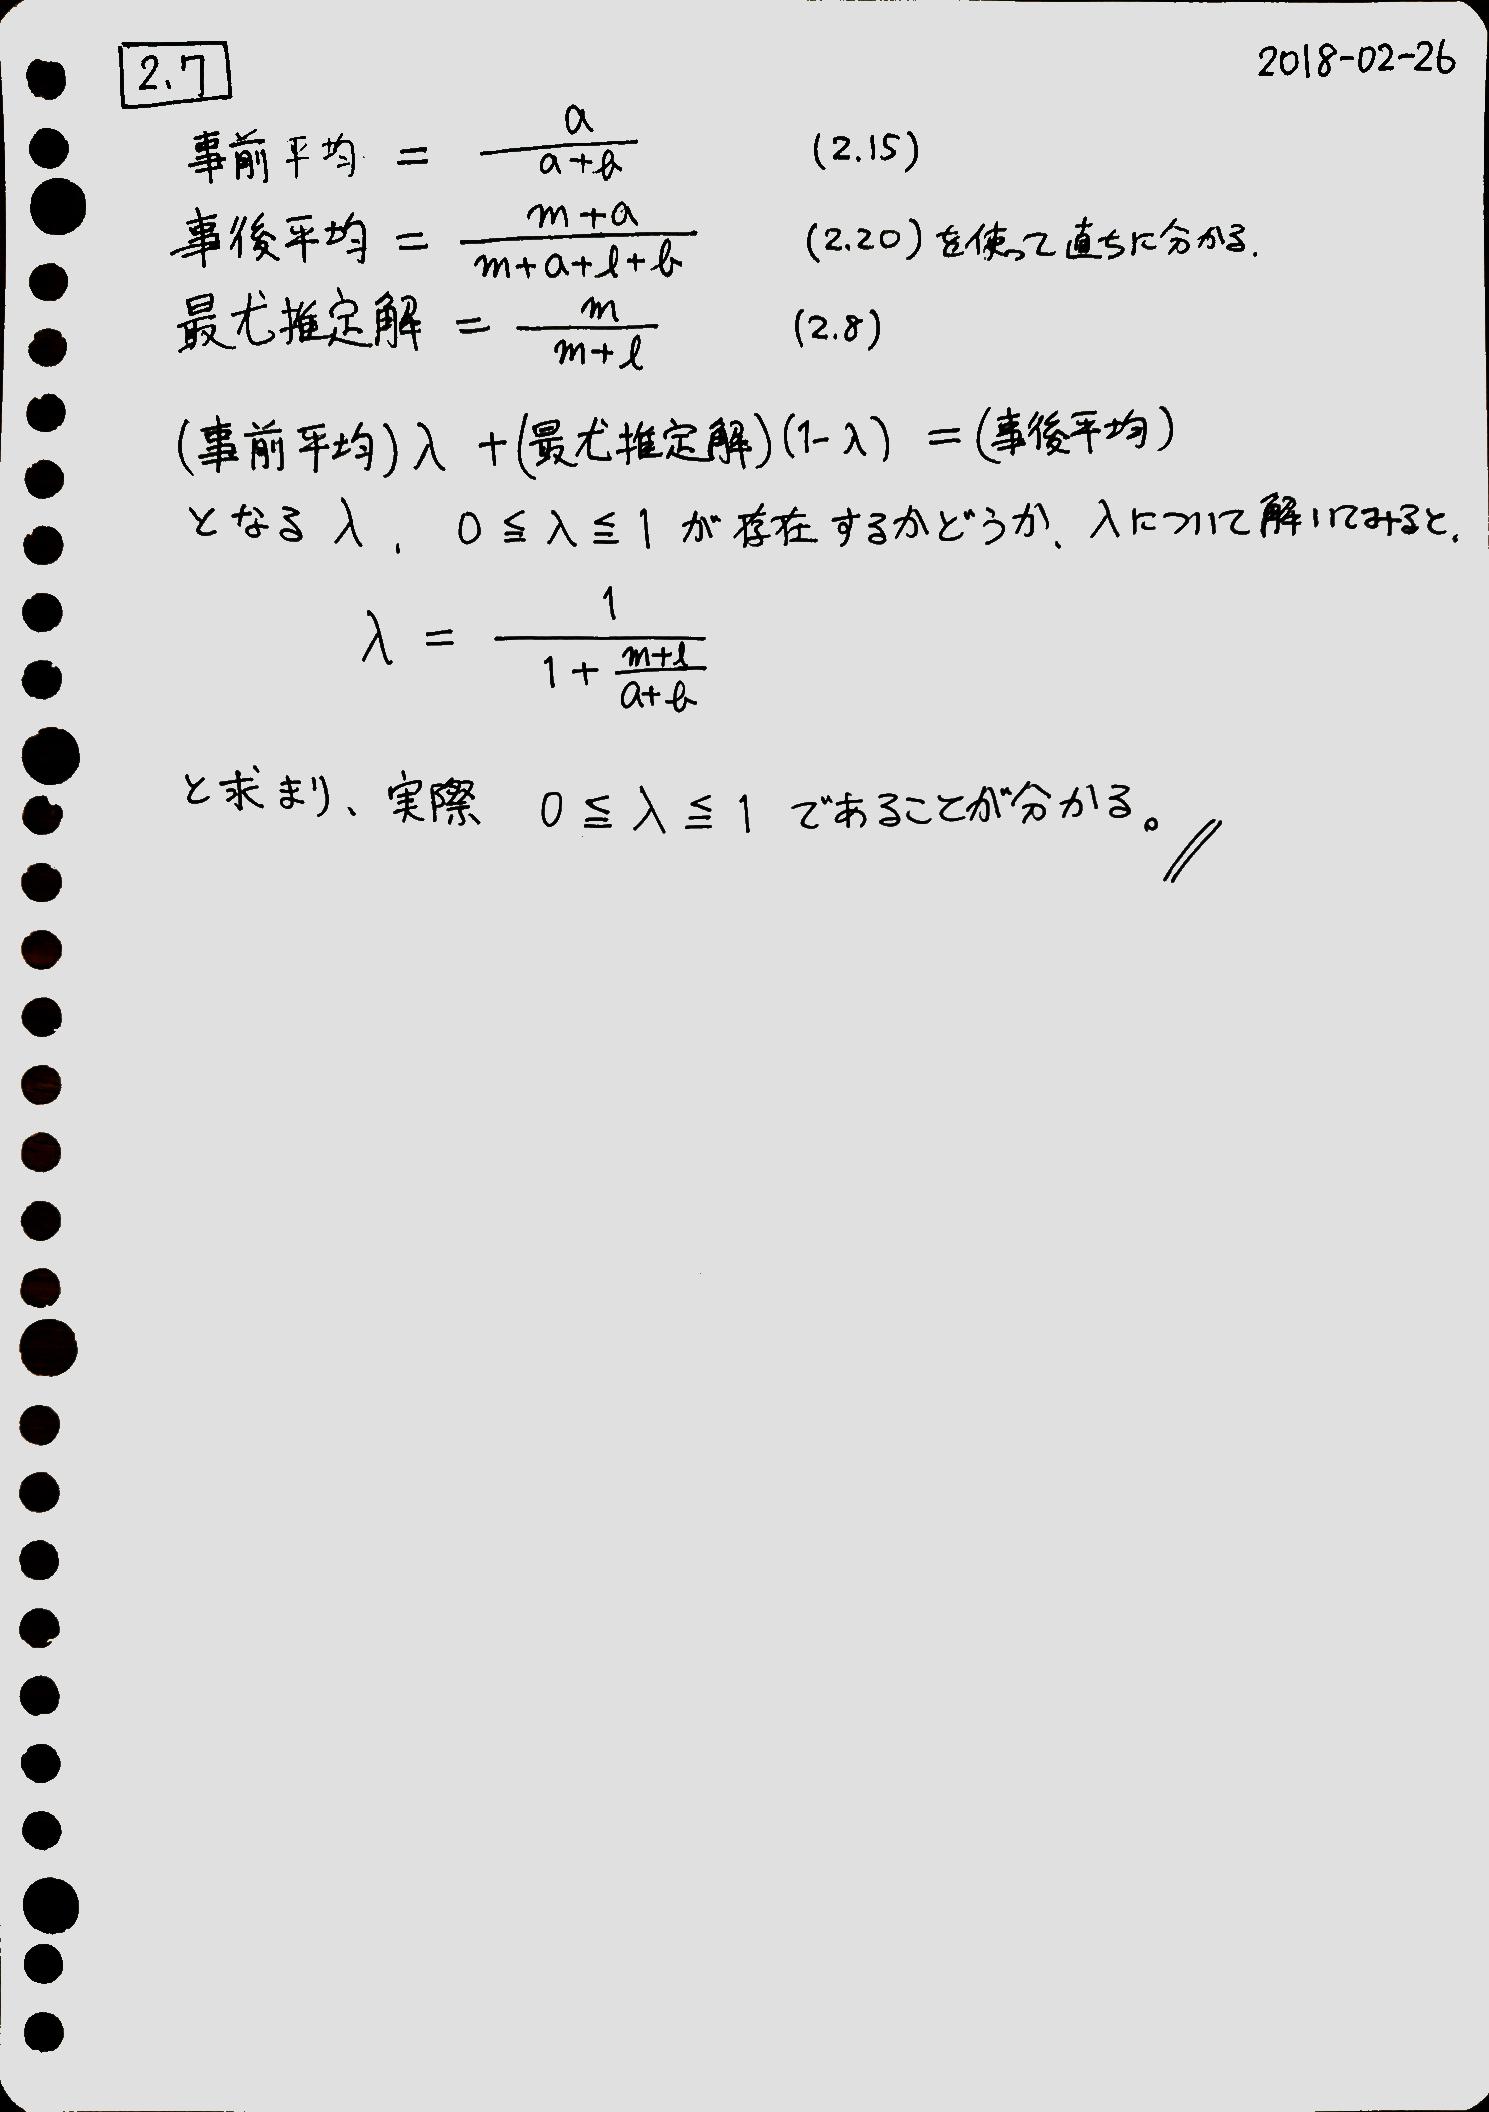 2.7 2018-02-26
事前平均 = a/(a+b) (2.15)
事後平均 = (m+a)/(m+a+l+b) (2.20) を使って直ちに分かる.
最尤推定解 = m/(m+l) (2.8)
(事前平均)λ + (最尤推定解)(1-λ) = (事後平均)
となる λ, 0 ≦ λ ≦ 1 が存在するかどうか、λについて解いてみると,
λ = 1/(1 + (m+l)/(a+b))
と求まり、実際 0 ≦ λ ≦ 1 であることが分かる。//